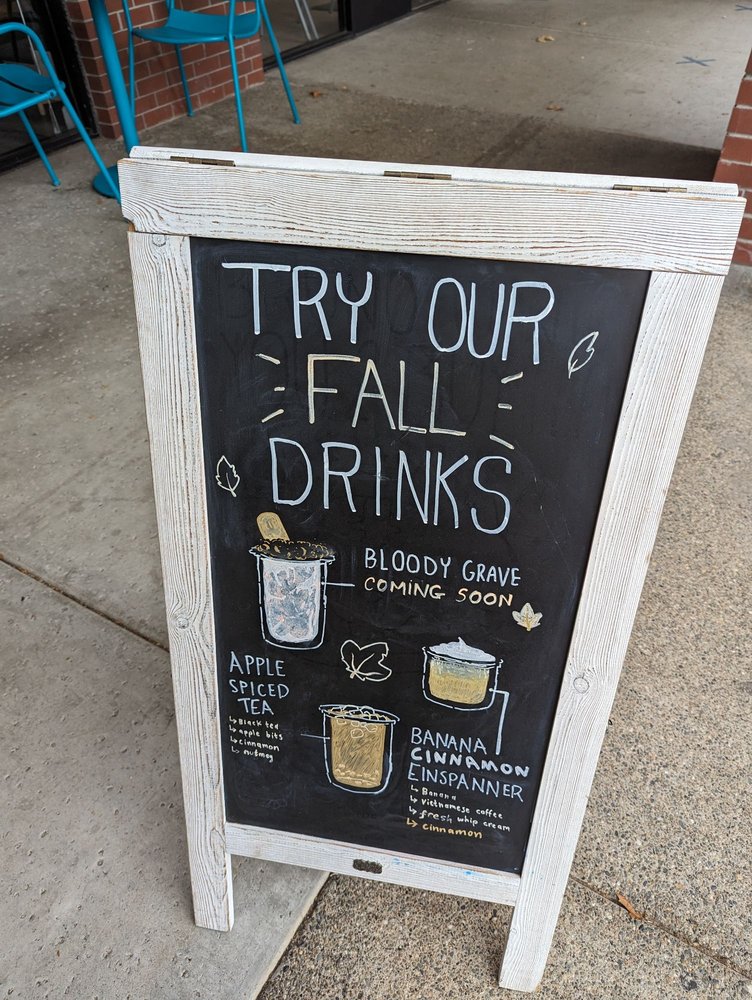 TRY OUR
FALL
DRINKS
BLOODY GRAVE
COMING SOON
APPLE
SPICED
TEA
↳ Black tea
↳ apple bits
↳ cinnamon
↳ nutmeg
BANANA
CINNAMON
EINSPANNER
↳ Banana
↳ Vietnamese coffee
↳ fresh whip cream
↳ cinnamon